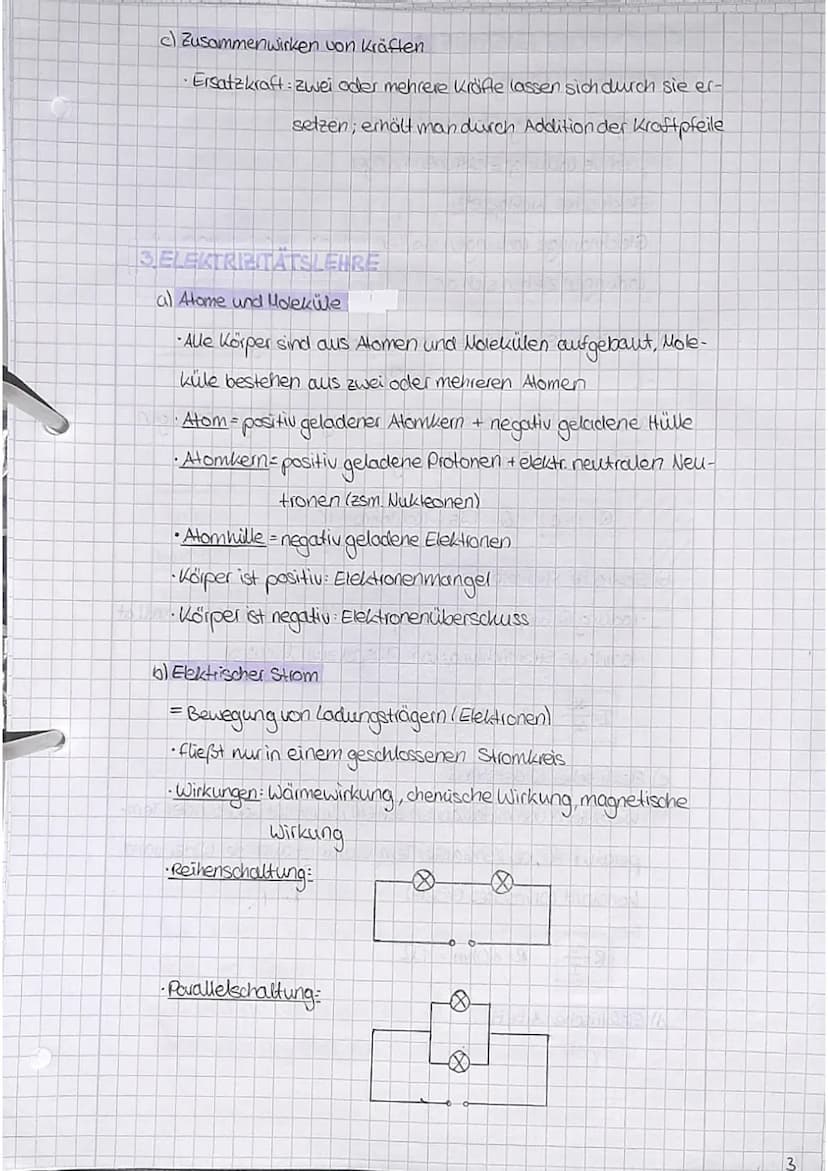 c) Zusammenwirken von Kräften
· Ersatzkraft: zwei oder mehrere Kräfte lassen sich durch sie er-
setzen; erhält man durch Addition der Kraftpfeile
3. ELEKTRIZITÄTSLEHRE
a) Atome und Moleküle
· Alle Körper sind aus Atomen und Molekülen aufgebaut, Mole-
küle bestehen aus zwei oder mehreren Atomen
· Atom = positiv geladener Atomkern + negativ geladene Hülle
· Atomkern = positiv geladene Protonen + elektr. neutralen Neu-
tronen (zsm. Nukleonen)
· Atomhülle = negativ geladene Elektronen
· Körper ist positiv: Elektronenmangel
· Körper ist negativ: Elektronenüberschuss
b) Elektrischer Strom
= Bewegung von Ladungsträgern (Elektronen)
· fließt nur in einem geschlossenen Stromkreis
· Wirkungen: Wärmewirkung, chemische Wirkung, magnetische
Wirkung
· Reihenschaltung:
· Parallelschaltung:
3